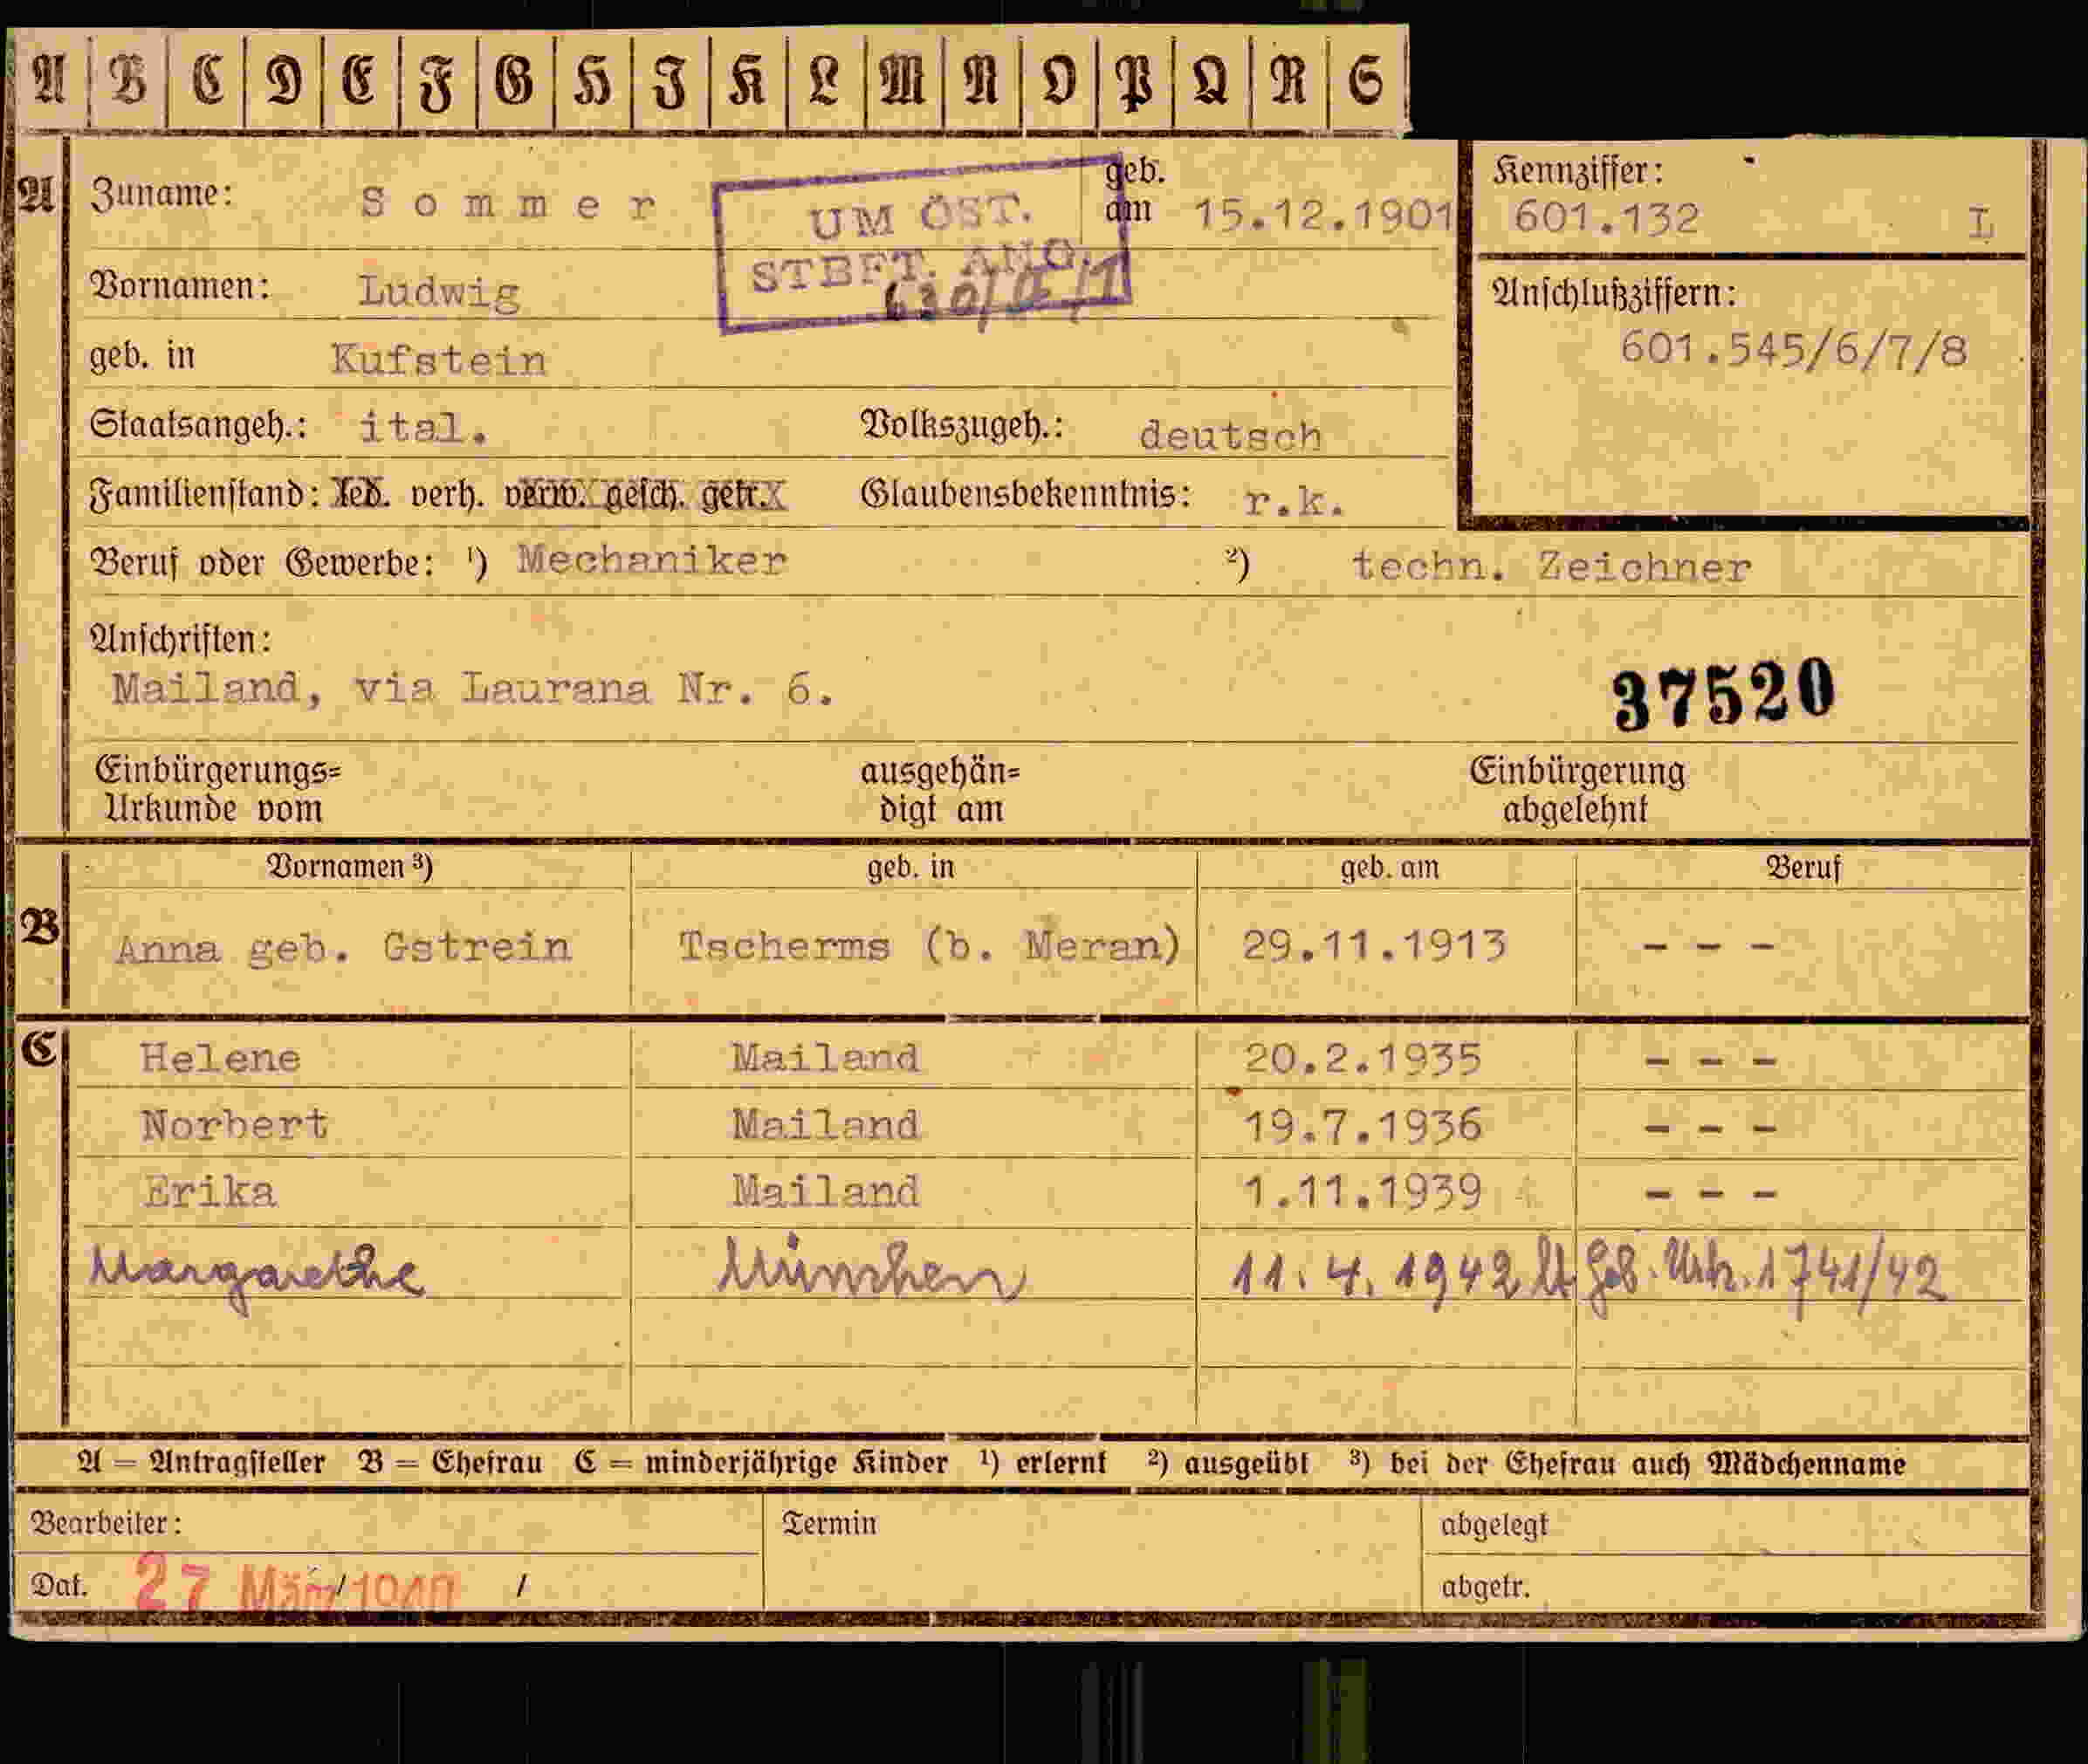 A B C D E F G H I K L M N O P Q R S
A Zuname: Sommer geb. am 15.12.1901
UM ÖST.
STBFT. ANG.
Kennziffer:
601.132 L
Vornamen: Ludwig
Anschlußziffern:
601.545/6/7/8
geb. in Kufstein
Staatsangeh.: ital. Volkszugeh.: deutsch
Familienstand: led. verh. verw. gesch. getr. Glaubensbekenntnis: r.k.
Beruf oder Gewerbe: ¹) Mechaniker ²) techn. Zeichner
Anschriften:
Mailand, via Laurana Nr. 6.
37520
Einbürgerungs= Urkunde vom ausgehän= digt am Einbürgerung abgelehnt
Vornamen ³) geb. in geb. am Beruf
B Anna geb. Gstrein Tscherms (b. Meran) 29.11.1913 - - -
C Helene Mailand 20.2.1935 - - -
Norbert Mailand 19.7.1936 - - -
Erika Mailand 1.11.1939 - - -
Margarethe München 11.4.1942 lt Geb. Urk. 1741/42
A = Antragsteller B = Ehefrau C = minderjährige Kinder ¹) erlernt ²) ausgeübt ³) bei der Ehefrau auch Mädchenname
Bearbeiter: Termin abgelegt
Dat. 27 März 1940 / / abgetr.